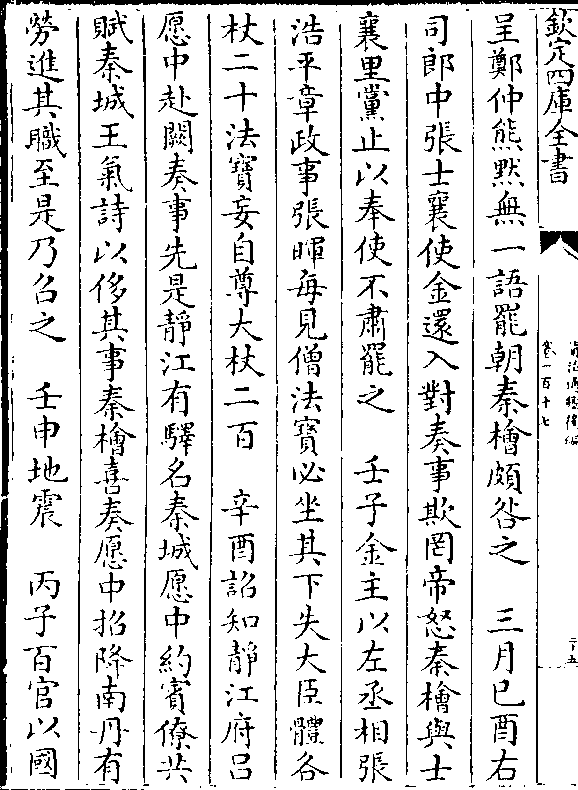 欽定四庫全書
資治通鑑後編
卷一百十七
二十五
呈鄭仲熊默無一語罷朝秦檜頗咎之　三月己酉右
司郎中張士襄使金還入對奏事欺罔帝怒秦檜與士
襄里黨止以奉使不肅罷之　壬子金主以左丞相張
浩平章政事張暉每見僧法寶必坐其下失大臣體各
杖二十法寶妄自尊大杖二百　辛酉詔知靜江府呂
愿中赴闕奏事先是靜江有驛名秦城愿中約賓僚共
賦秦城王氣詩以侈其事秦檜喜奏愿中招降南丹有
勞進其職至是乃召之　壬申地震　丙子百官以國